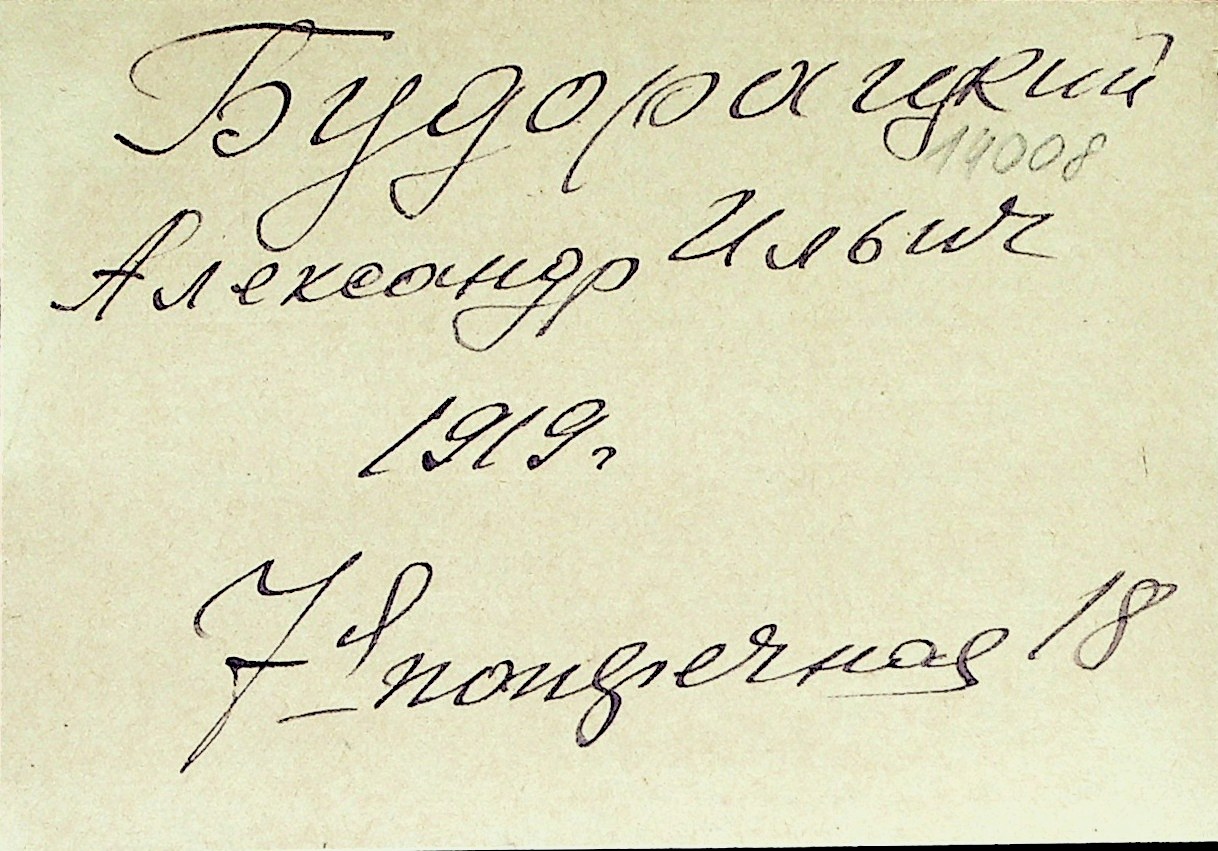 Будорацкий
14008
Александр Ильич
1919г
7я поперечная 18